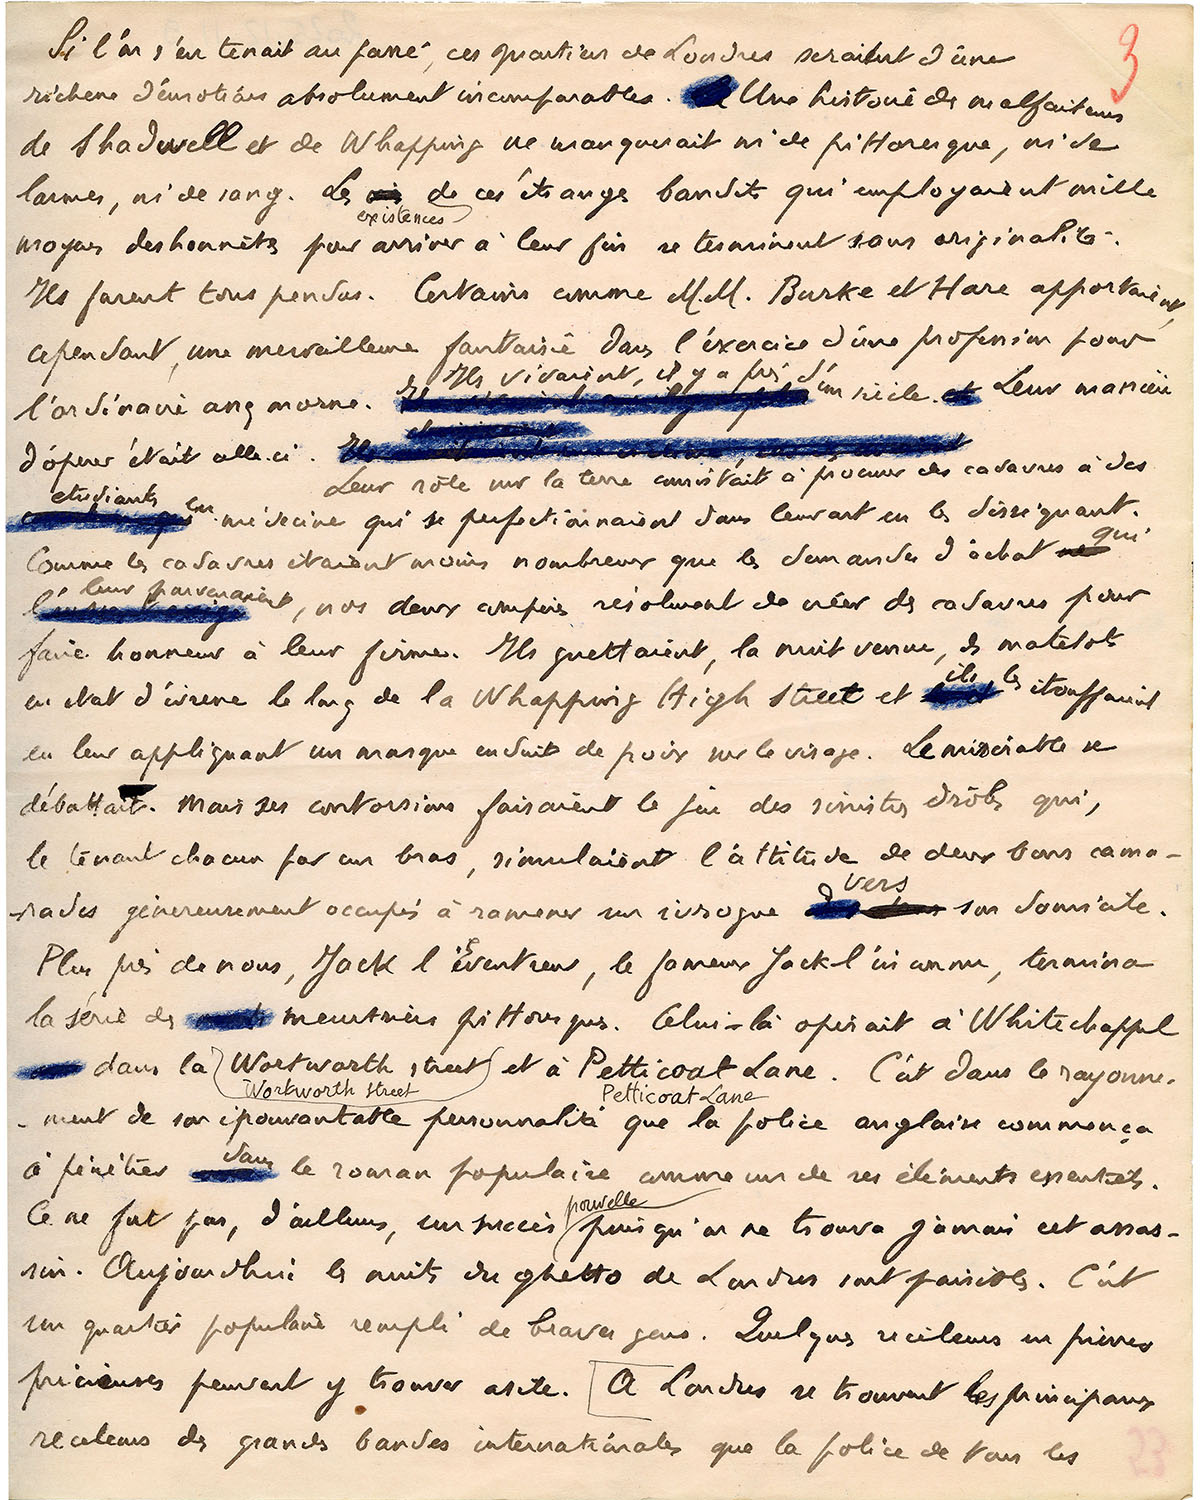 3
Si l'on s'en tenait au passé, ces quartiers de Londres seraient d'une
richesse d'émotions absolument incomparables. Une histoire de malfaiteurs
de Shadwell et de Whapping ne manquerait ni de pittoresque, ni de
larmes, ni de sang. Les existences de ces étranges bandits qui employaient mille
moyens deshonnêtes pour arriver à leur fin se terminent sans originalité.
Ils furent tous pendus. Certains comme M.M. Burke et Hare apportaient,
cependant, une merveilleuse fantaisie dans l'exercice d'une profession pour
l'ordinaire assez morne. Ils vivaient, il y a près d'un siècle. Leur manière
d'opérer était celle-ci.
Leur rôle sur la terre consistait à procurer des cadavres à des
etudiants en médecine qui se perfectionnaient dans leur art en les disséquant.
Comme les cadavres étaient moins nombreux que les demandes d'achat qui
leur parvenaient, nos deux compères résolurent de créer des cadavres pour
faire honneur à leur firme. Ils guettaient, la nuit venue, des matelots
en état d'ivresse le long de la Whapping High Street et ils les étouffaient
en leur appliquant un masque enduit de poix sur le visage. Le misérable se
débattait. Mais ses contorsions faisaient le jeu des sinistres drôles qui,
le tenant chacun par un bras, simulaient l'attitude de deux bons cama-
-rades généreusement occupés à ramener un ivrogne vers son domicile.
Plus près de nous, Jack l'éventreur, le fameux Jack l'inconnu, termina
la série des meurtriers pittoresques. Celui-là opérait à Whitechappel
dans la (Workworth street) et à Petticoat Lane. C'est dans le rayonne-
Workworth Street Petticoat Lane
-ment de son épouvantable personnalité que la police anglaise commença
à pénétrer dans le roman populaire comme un de ses éléments essentiels.
Ce ne fut pas, d'ailleurs, un succès pour elle puisqu'on ne trouva jamais cet assas-
sin. Aujourdhui les nuits du ghetto de Londres sont paisibles. C'est
un quartier populaire rempli de braves gens. Quelques receleurs en pierres
précieuses peuvent y trouver asile. [A Londres se trouvent les principaux
receleurs des grandes bandes internationales que la police de tous les
23